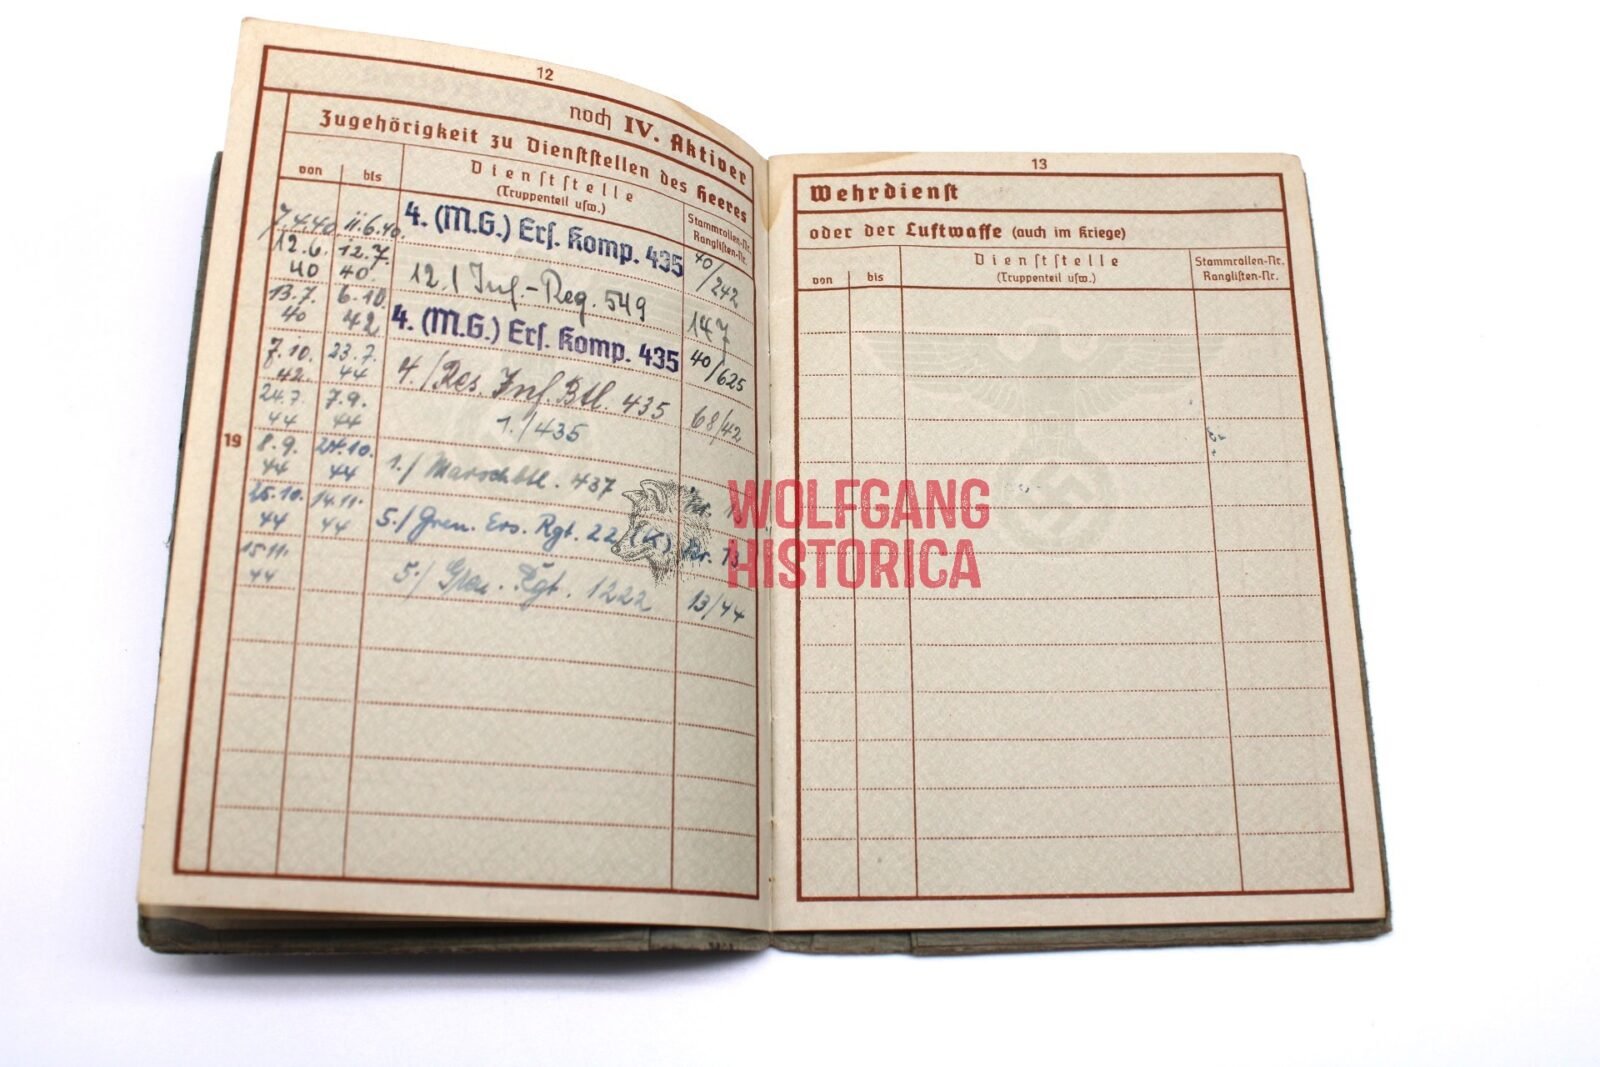 12
noch IV. Aktiver
Zugehörigkeit zu Dienststellen des Heeres
von bis Dienststelle (Truppenteil usw.) Stammrollen-Nr. Ranglisten-Nr.
7.4.40. 11.6.40. 4. (M.G.) Ers. Komp. 435 40/242
12.6. 40 12.7. 40. 12./ Inf.-Reg. 549 147
13.7. 40 6.10. 42 4. (M.G.) Ers. Komp. 435 40/625
7.10. 42 23.7. 44 4./Res. Inf. Btl. 435 68/42
24.7. 44 7.9. 44 1./435
19
8.9. 44 24.10. 44 1./ Marschbtl. 437
25.10. 44 14.11. 44 5./ Gren. Ers. Rgt. 22 (K) Nr. 13
15.11. 44 5./ Gren. Rgt. 1222 13/44
13
Wehrdienst
oder der Luftwaffe (auch im Kriege)
von bis Dienststelle (Truppenteil usw.) Stammrollen-Nr. Ranglisten-Nr.
WOLFGANG
HISTORICA